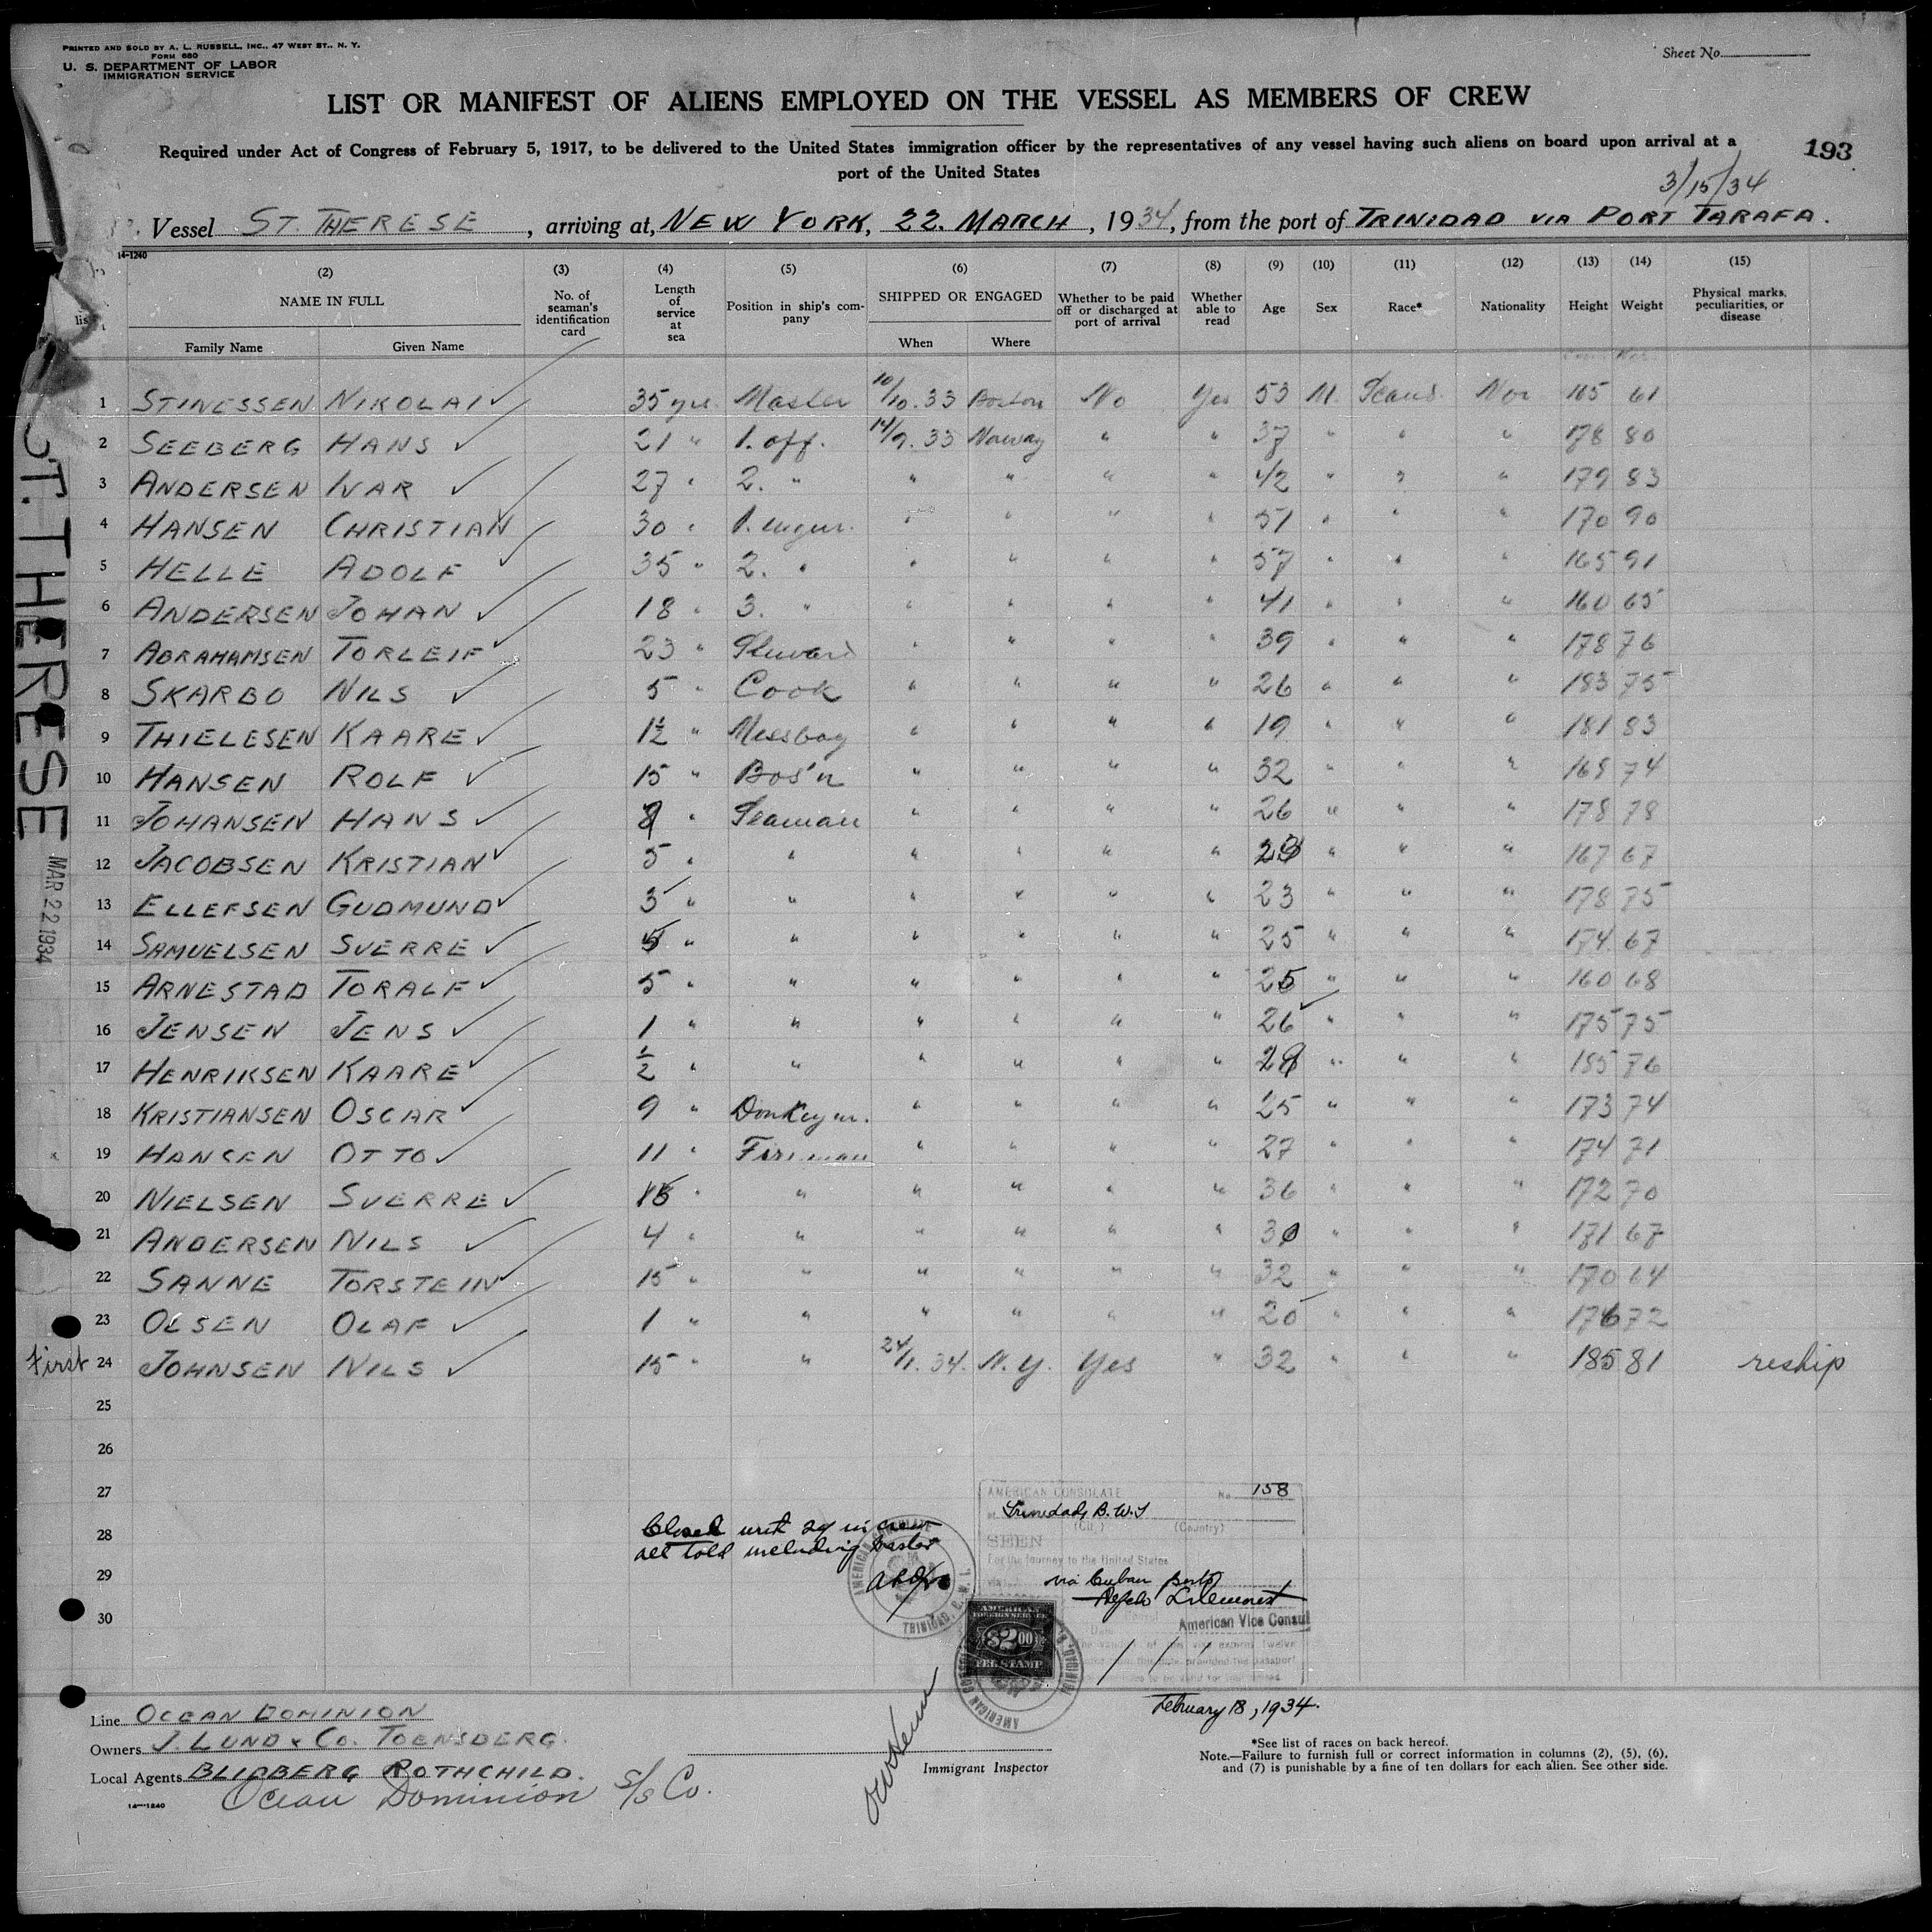 PRINTED AND SOLD BY A. L. RUSSELL, INC., 47 WEST ST., N. Y.
FORM 680
U. S. DEPARTMENT OF LABOR
IMMIGRATION SERVICE
Sheet No.
LIST OR MANIFEST OF ALIENS EMPLOYED ON THE VESSEL AS MEMBERS OF CREW
Required under Act of Congress of February 5, 1917, to be delivered to the United States immigration officer by the representatives of any vessel having such aliens on board upon arrival at a
port of the United States
193
3/15/34
Vessel ST. THERESE, arriving at, NEW YORK, 22. MARCH, 1934, from the port of TRINIDAD VIA PORT TARAFA.
14-1240
(2) (3) (4) (5) (6) (7) (8) (9) (10) (11) (12) (13) (14) (15)
NAME IN FULL No. of seaman's identification card Length of service at sea Position in ship's company SHIPPED OR ENGAGED Whether to be paid off or discharged at port of arrival Whether able to read Age Sex Race* Nationality Height Weight Physical marks, peculiarities, or disease
Family Name Given Name When Where
1 STINESSEN NIKOLAI 35 yrs Master 10/10.33 Boston No Yes 53 M. Scand. Nor 165 61
2 SEEBERG HANS 21 " 1. off. 14/9.33 Norway " " 37 " " " 178 80
3 ANDERSEN IVAR 27 " 2. " " " " " 42 " " " 179 83
4 HANSEN CHRISTIAN 30 " 1. engnr. " " " " 51 " " " 170 90
5 HELLE ADOLF 35 " 2. " " " " " 57 " " " 165 91
6 ANDERSEN JOHAN 18 " 3. " " " " " 41 " " " 160 65
7 ABRAHAMSEN TORLEIF 23 " Steward " " " " 39 " " " 178 76
8 SKARBO NILS 5 " Cook " " " " 26 " " " 183 75
9 THIELESEN KAARE 1½ " Messboy " " " " 19 " " " 181 83
10 HANSEN ROLF 15 " Bos'n " " " " 32 " " " 168 74
11 JOHANSEN HANS " Seaman " " " " 26 " " " 178 78
12 JACOBSEN KRISTIAN 5 " " " " " " " " " 167 67
13 ELLEFSEN GUDMUND 3 " " " " " " 23 " " " 178 75
14 SAMUELSEN SVERRE " " " " " " 25 " " " 174 67
15 ARNESTAD TORALF 5 " " " " " " 25 " " " 160 68
16 JENSEN JENS 1 " " " " " " 26 " " " 175 75
17 HENRIKSEN KAARE ½ " " " " " " " " " 185 76
18 KRISTIANSEN OSCAR 9 " Donkeym. " " " " 25 " " " 173 74
19 HANSEN OTTO 11 " Fireman " " " " 27 " " " 174 71
20 NIELSEN SVERRE " " " " " " 36 " " " 172 70
21 ANDERSEN NILS 4 " " " " " " 30 " " " 171 67
22 SANNE TORSTEIN 15 " " " " " " 32 " " " 170 64
23 OLSEN OLAF 1 " " " " " " 20 " " " 176 72
First 24 JOHNSEN NILS 15 " " 24/1.34. N.Y. Yes " 32 " " " 185 81 reship
25
26
27
28
29
30
ST. THERESE
MAR 22 1934
Closed with 24 in crew
all told including Master
AMERICAN CONSULATE No. 158
at Trinidad, B.W.I
(City) (Country)
SEEN
For the journey to the United States
via Cuban ports
American Vice Consul
AMERICAN
FOREIGN SERVICE
$2.00
FEE STAMP
February 18, 1934.
Line OCEAN DOMINION
Owners J. LUND & CO. TOENSBERG.
Local Agents BLIDBERG ROTHCHILD.
Ocean Dominion S/S Co.
14-1240
Immigrant Inspector
*See list of races on back hereof.
Note.—Failure to furnish full or correct information in columns (2), (5), (6),
and (7) is punishable by a fine of ten dollars for each alien. See other side.